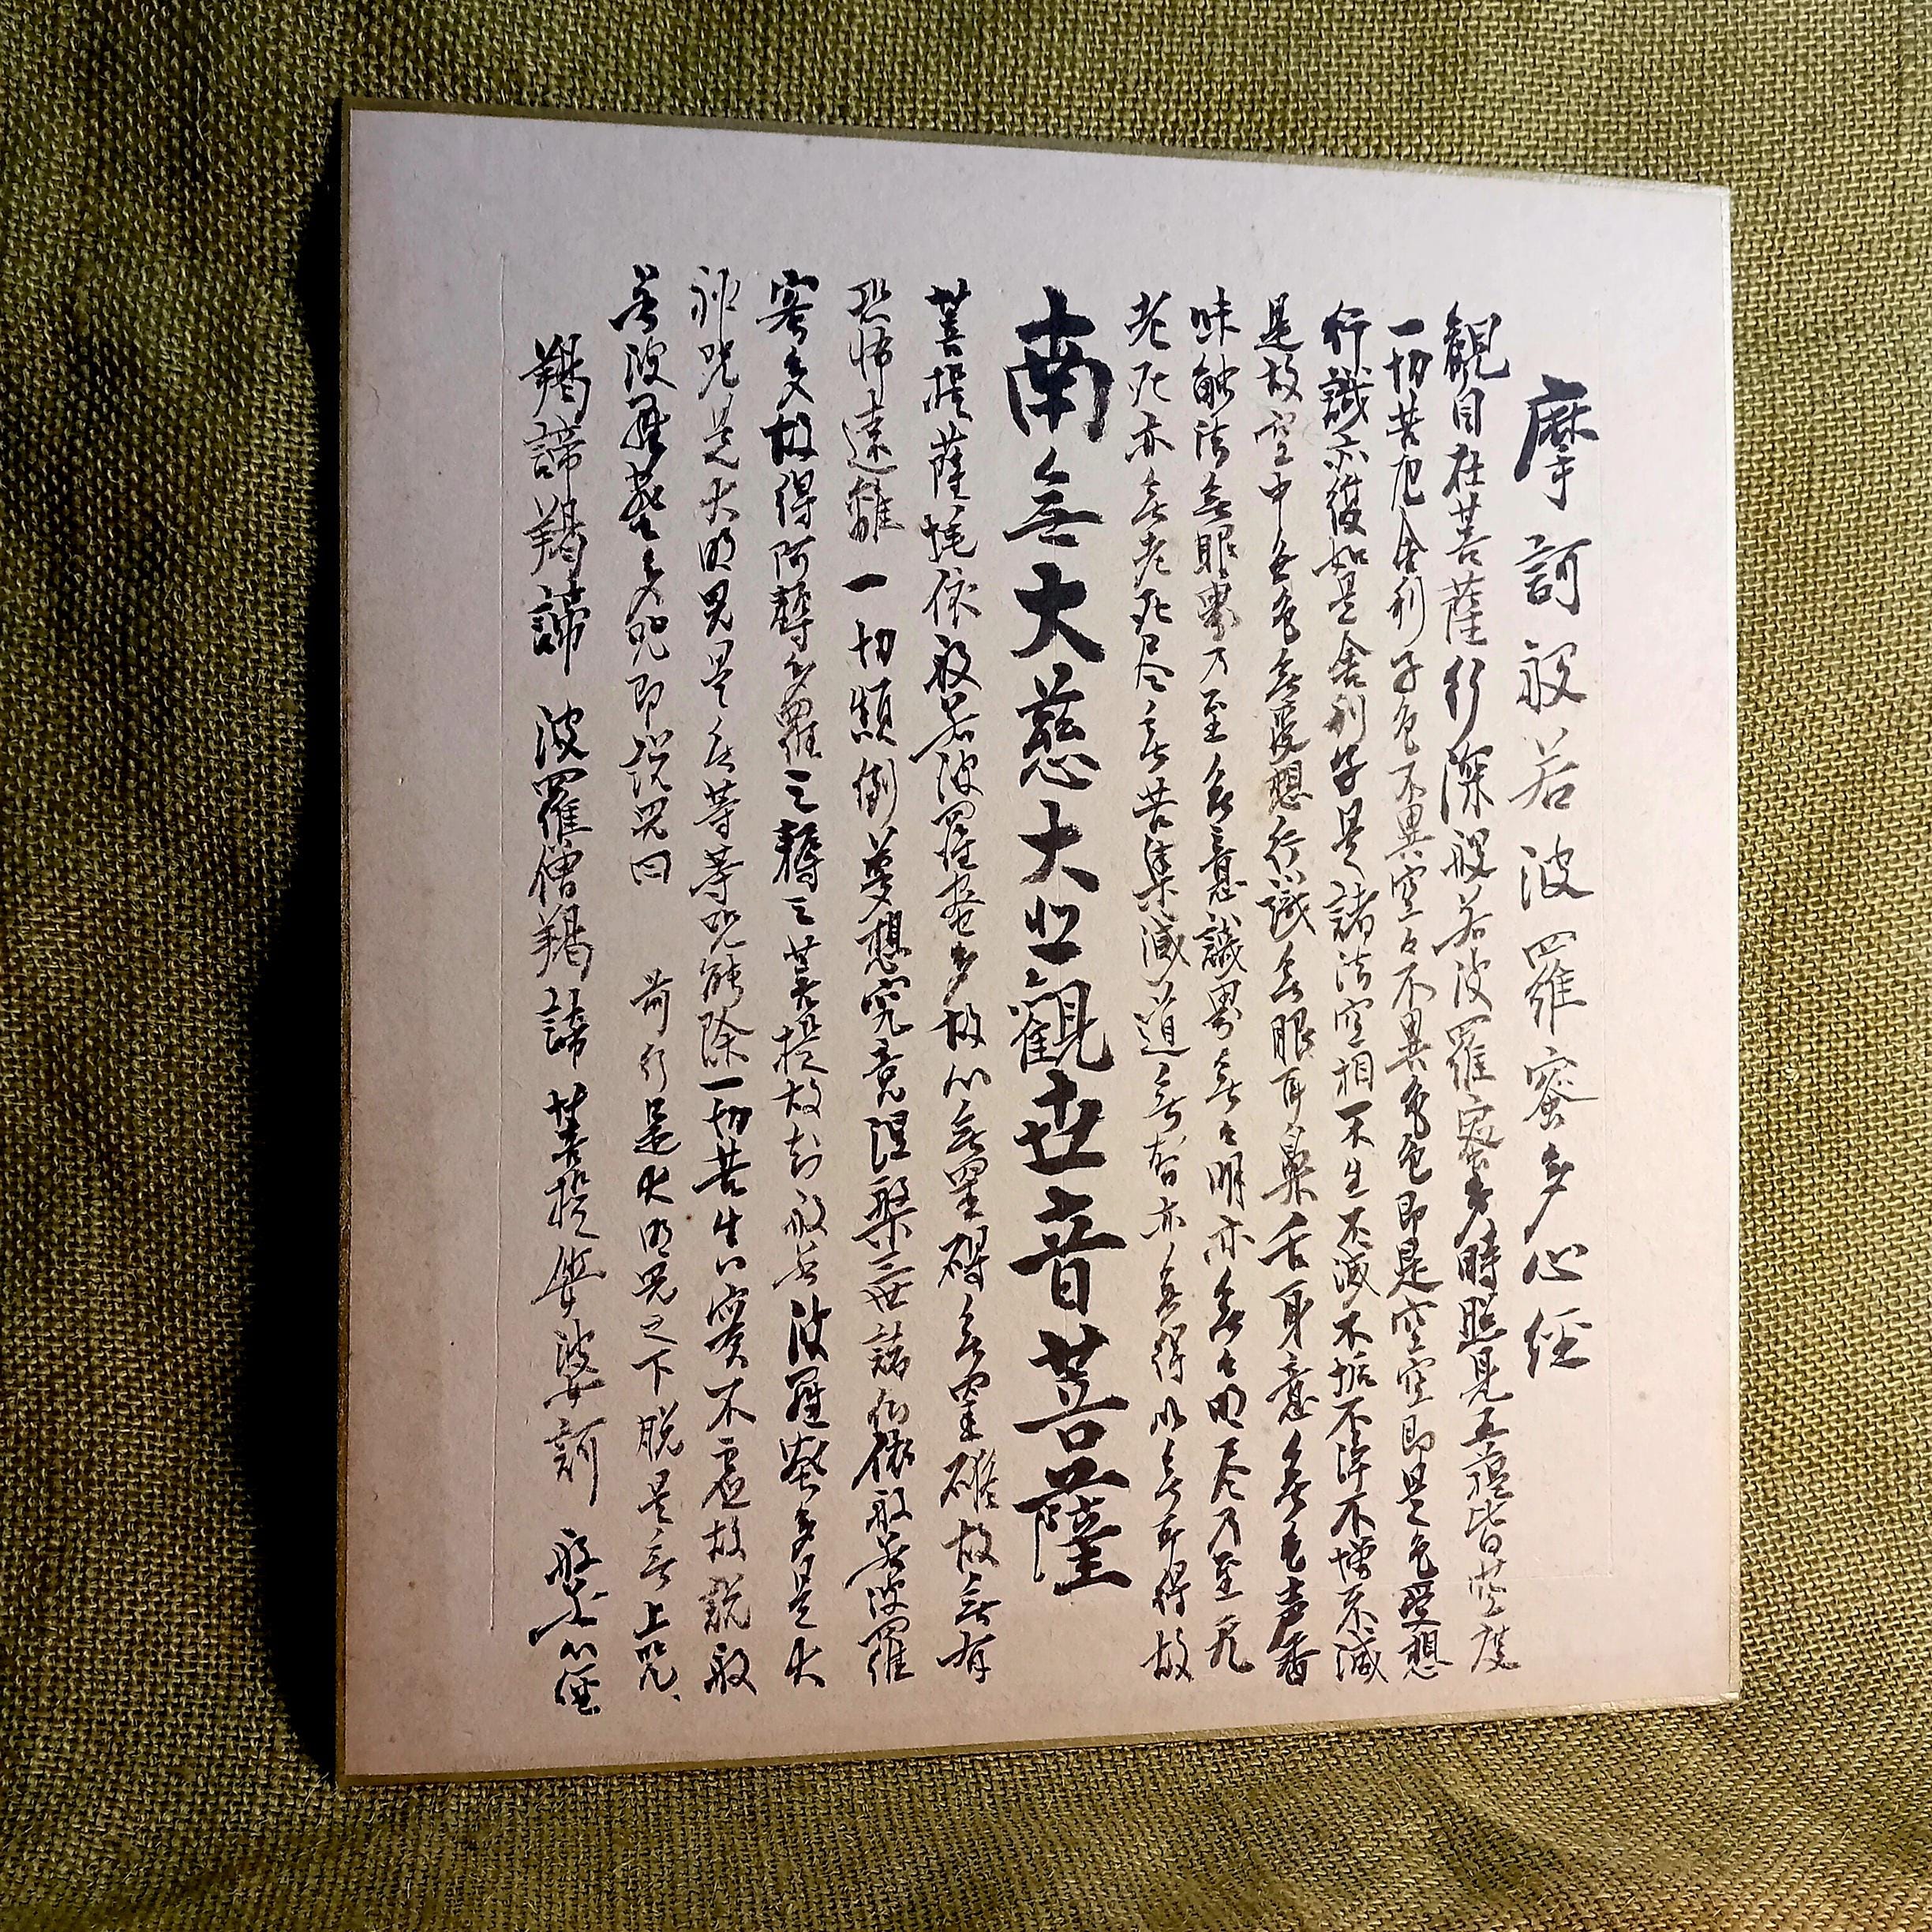 摩訶般若波羅蜜多心経
観自在菩薩行深般若波羅蜜多時照見五蘊皆空度
一切苦厄舎利子色不異空々不異色色即是空空即是色受想
行識亦復如是舎利子是諸法空相不生不滅不垢不浄不増不減
是故空中無色無受想行識無眼耳鼻舌身意無色声香
味触法無眼界乃至無意識界無々明亦無々明尽乃至無
老死亦無老死尽無苦集滅道無智亦無得以無所得故
南無大慈大悲観世音菩薩
菩提薩埵依般若波羅蜜多故心無罣礙無罣礙故無有
恐怖遠離一切顛倒夢想究竟涅槃三世諸仏依般若波羅
蜜多故得阿耨多羅三藐三菩提故知般若波羅蜜多是大
神咒是大明咒是無等等咒能除一切苦真実不虚故説般
若波羅蜜多咒即説咒曰 前行是大明咒之下脱是無上咒、
羯諦羯諦 波羅僧羯諦 菩提娑婆訶 般若心経